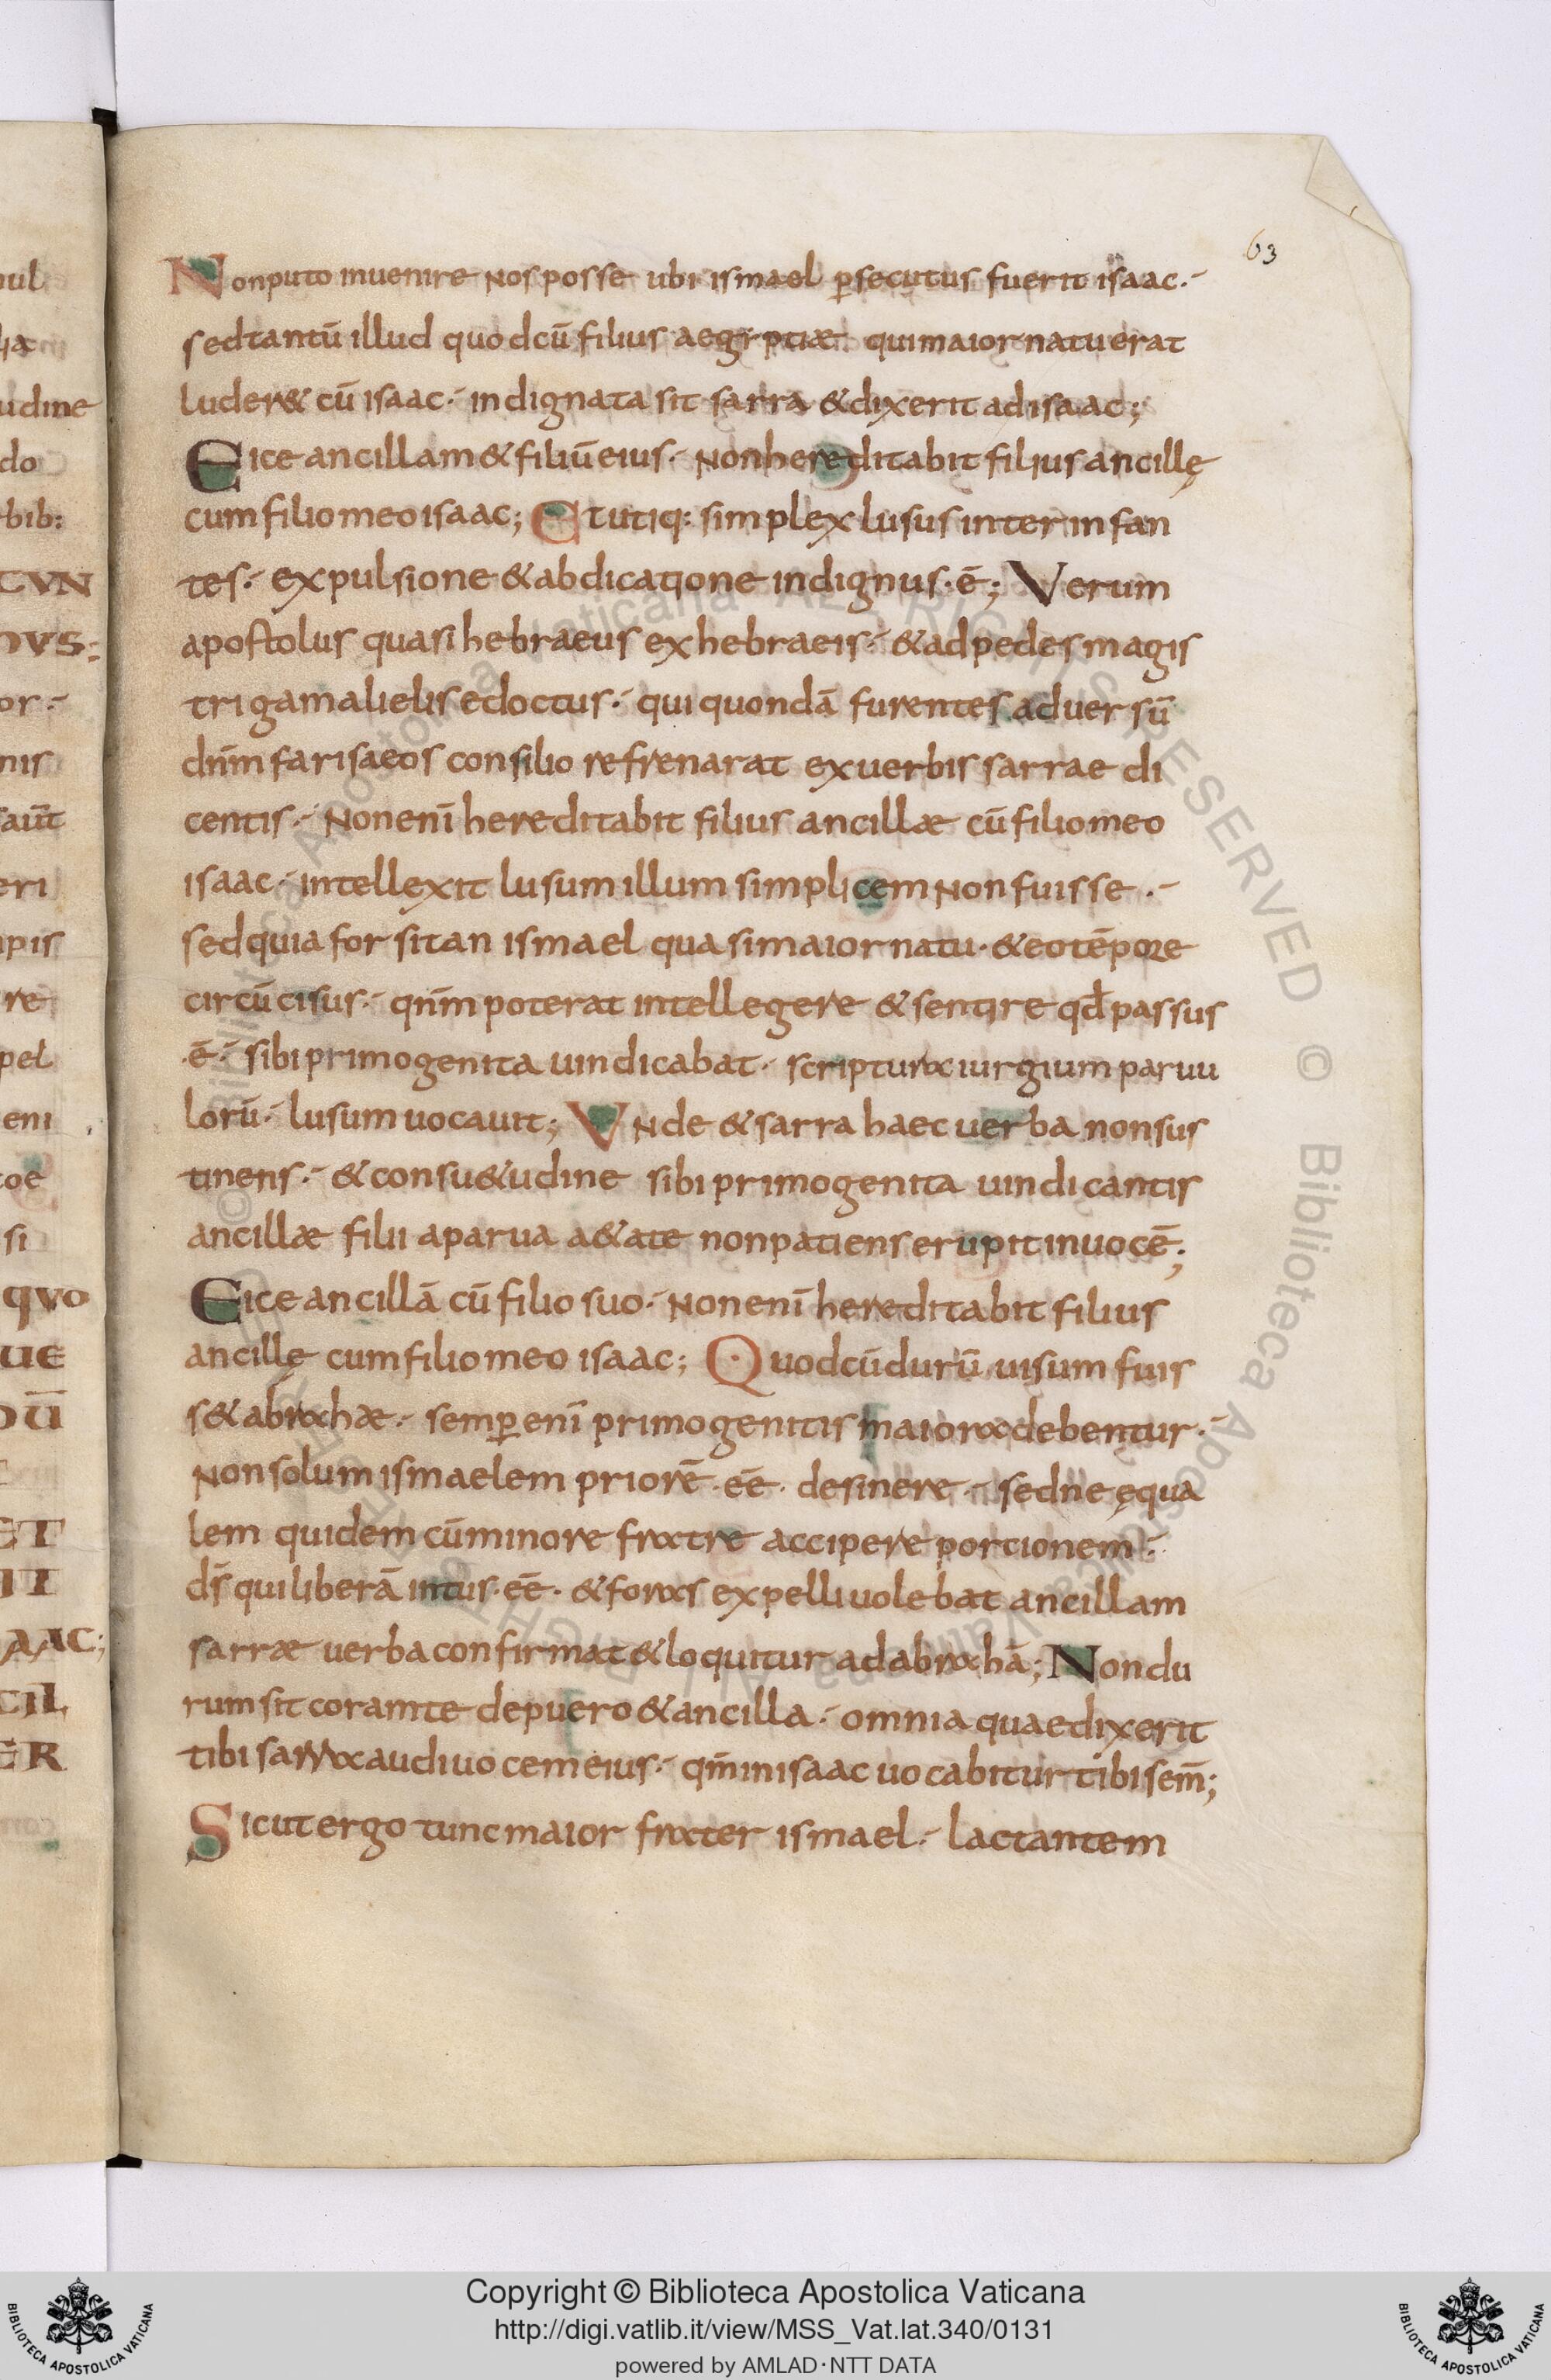 63
Nonputo inuenire nosposse ubi ismael ꝑsecutus fuerit isaac.
sedtantū illud quodcū filius aegiptiæ quimaiornatuerat
luder& cū isaac. indignata sit sarra &dixerit adisaac;
Eice ancillam&filiūeius. nonhereditabit filius ancillę
cumfiliomeoisaac; Etutiq: simplex lusus inter infan
tes. expulsione &abdicatione indignus.ē; Verum
apostolus quasi hebraeus exhebraeis. &adpedes magis
tri gamalielis edoctus. qui quondā furentes aduersū
dn̄m farisaeos consilio refrenarat exuerbis sarrae di
centis. Nonenī hereditabit filius ancillæ cū filiomeo
isaac. intellexit lusum illum simplicem nonfuisse.
sedquia forsitan ismael quasimaior natu. &eotēpore
circūcisus. qn̄m poterat intellegere &sentire qd̄ passus
.ē. sibi primogenita uindicabat. scriptura iurgium paruu
lorū. lusum uocauit; Vnde &sarra haec uerba nonsus
tinens. &consu&udine sibi primogenita uindicantis
ancillæ filii aparua a&ate nonpatiens erupit inuocē;
Eice ancillā cū filio suo. Nonenī hereditabit filius
ancillę cumfiliomeo isaac; Quodcūdurū uisum fuis
s&abrahæ. semꝑ enī primogenitis maiora debentur.
Nonsolum ismaelem priorē .eē. desinere. sedne ęqua
lem quidem cūminore fratre accipere portionem.
ds̄ quiliberā intus.eē. &foras expelli uolebat ancillam
sarræ uerbaconfirmat&loquitur adabrahā; Nondu
rumsit coramte depuero&ancilla. omnia quaedixerit
tibi sarra audiuocemeius. qm̄inisaac uocabitur tibi sem̄;
Sicut ergo tunc maior frater ismael. lactantem
Copyright © Biblioteca Apostolica Vaticana
http://digi.vatlib.it/view/MSS_Vat.lat.340/0131
powered by AMLAD·NTT DATA
BIBLIOTECA APOSTOLICA VATICANA
BIBLIOTECA APOSTOLICA VATICANA